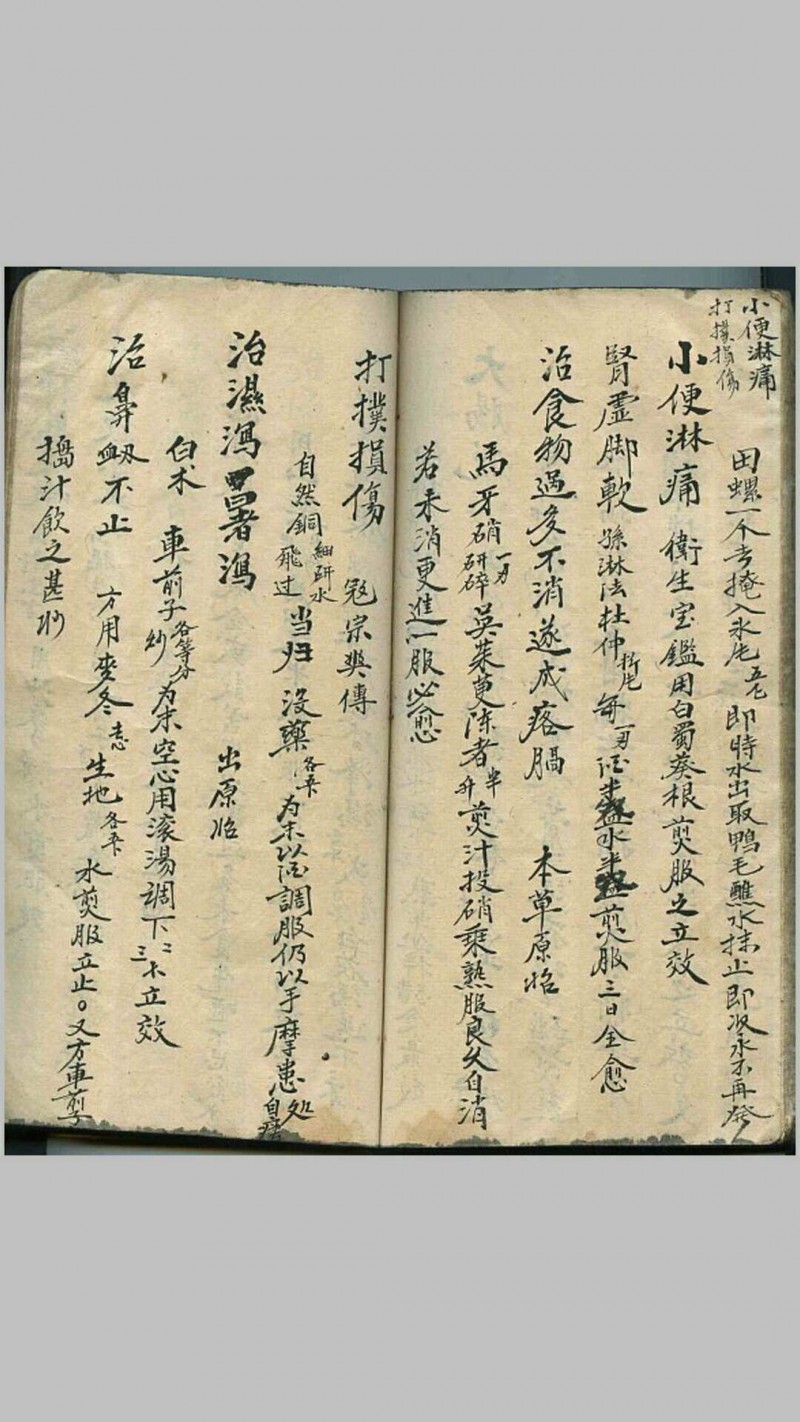 小便淋痛
打撲損傷
田螺一个去掩入永片五七即時水出取鴨毛蘸水抹上即收永不再發
小便淋痛 衛生宝鑑用白蜀葵根煎服之立效
腎虛脚軟 孫淋法杜仲折片每一刃酒半盞水半盞煎服三日全愈
治食物過多不消遂成痞膈 本草原始
馬牙硝一刃研碎吳茱萸陈者半升煎汁投硝乘熟服良久自消
若未消更進一服必愈
打撲損傷 冦宗奭傳
自然銅細研水飛过 当归 没藥各 为末以酒調服仍以手摩患处自痊
治濕瀉暑瀉 出原始
白术 車前子炒各等分为末空心用滚湯調下二三 立效
治鼻衂不止 方用麥冬去心生地各 水煎服立止。又方車前子
搗汁飲之甚妙